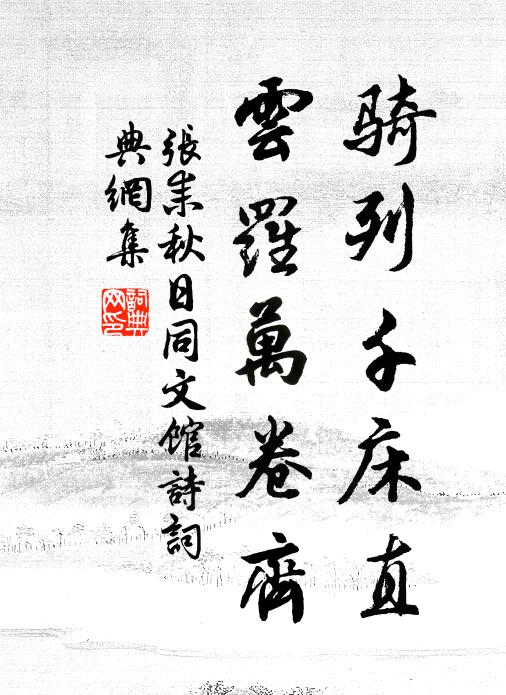 骑列千床直
雲羅萬卷齊
張耒秋日同文館詩詞
典網集
詞典網印